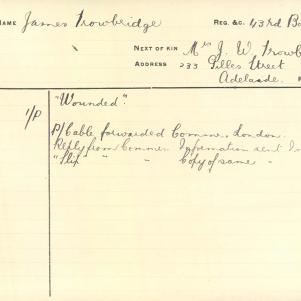 NAME James Trowbridge REG. &C. 43rd Ba
NEXT OF KIN Mrs J. W. Trowb
ADDRESS 233 Gilles Street
Adelaide.
1/P "Wounded".
P/Cable forwarded Commr. London.
Reply from Commr. Information sent
"Slip" " " Copy of same "